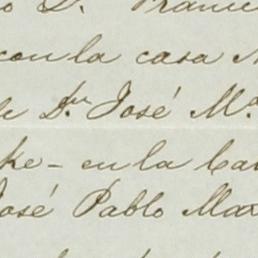 D. Franc
con la casa
D.ⁿ José M.ª
ke - en la Ca
José Pablo Mar